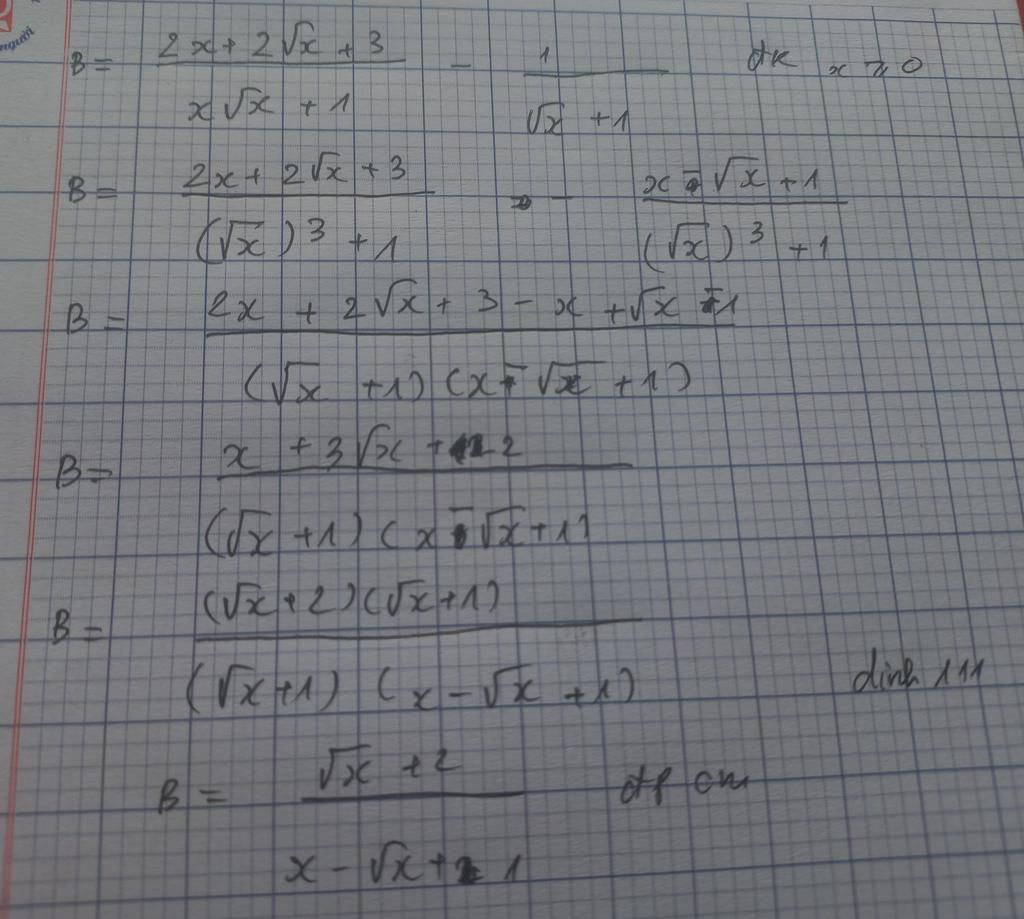 người
B = (2x + 2√x + 3)/(x√x + 1) - 1/(√x + 1) đk x ≥ 0
B = (2x + 2√x + 3)/((√x)³ + 1) - (x - √x + 1)/((√x)³ + 1)
B = (2x + 2√x + 3 - x + √x - 1)/((√x + 1)(x - √x + 1))
B = (x + 3√x + 2)/((√x + 1)(x - √x + 1))
B = ((√x + 2)(√x + 1))/((√x + 1)(x - √x + 1))
dinh 111
B = (√x + 2)/(x - √x + 1) đpcm